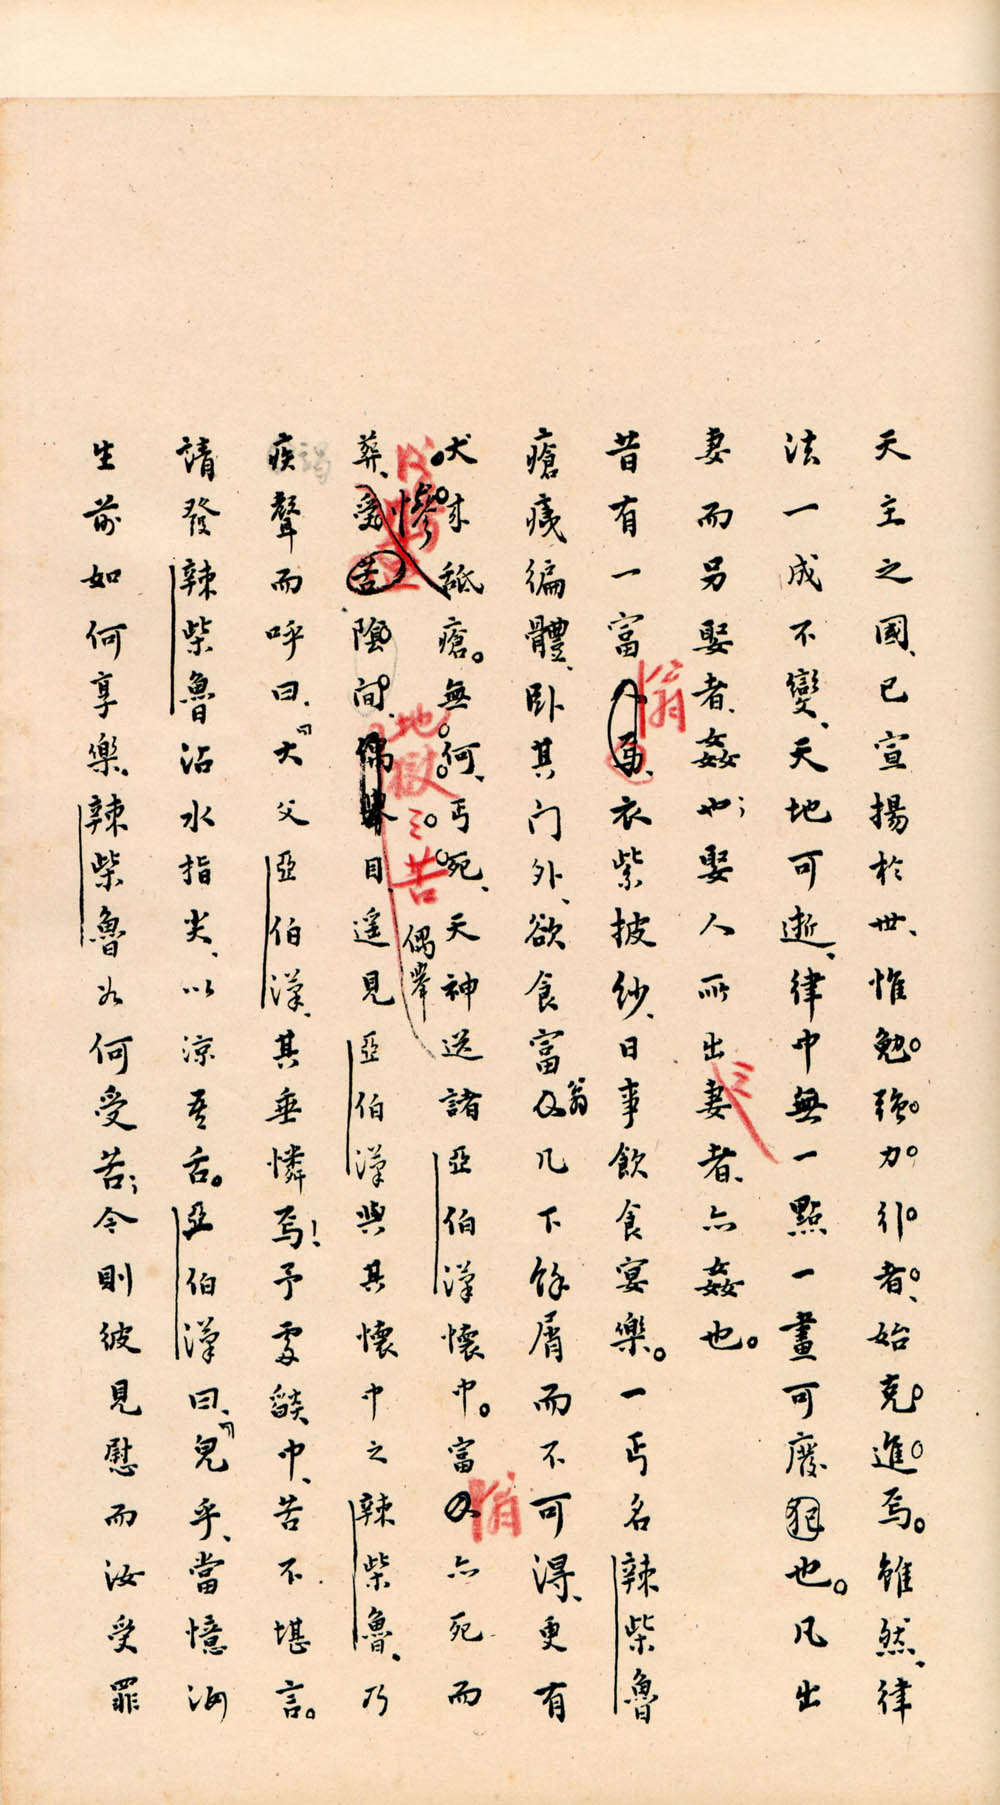 天主之國、已宣揚於世、惟勉強力行者、始克進焉。雖然、律
法一成不變、天地可逝、律中無一點一畫可廢也。凡出
妻而另娶者、姦也；娶人所出之妻者、亦姦也。
昔有一富翁、衣紫披紗、日事飲食宴樂。一丐名辣柴魯
瘡痍徧體、臥其门外、欲食富翁几下餘屑而不可得、更有
犬來舐瘡。無何、丐死、天神送諸亞伯漢懷中。富翁亦死而
葬、慘地獄之苦偶舉目遥見亞伯漢與其懷中之辣柴魯、乃
疾聲而呼曰、「大父亞伯漢、其垂憐焉！予處燄中、苦不堪言。
請發辣柴魯沾水指尖、以涼吾舌。亞伯漢曰、「兒乎、當憶汝
生前如何享樂、辣柴魯如何受苦；今則彼見慰而汝受罪